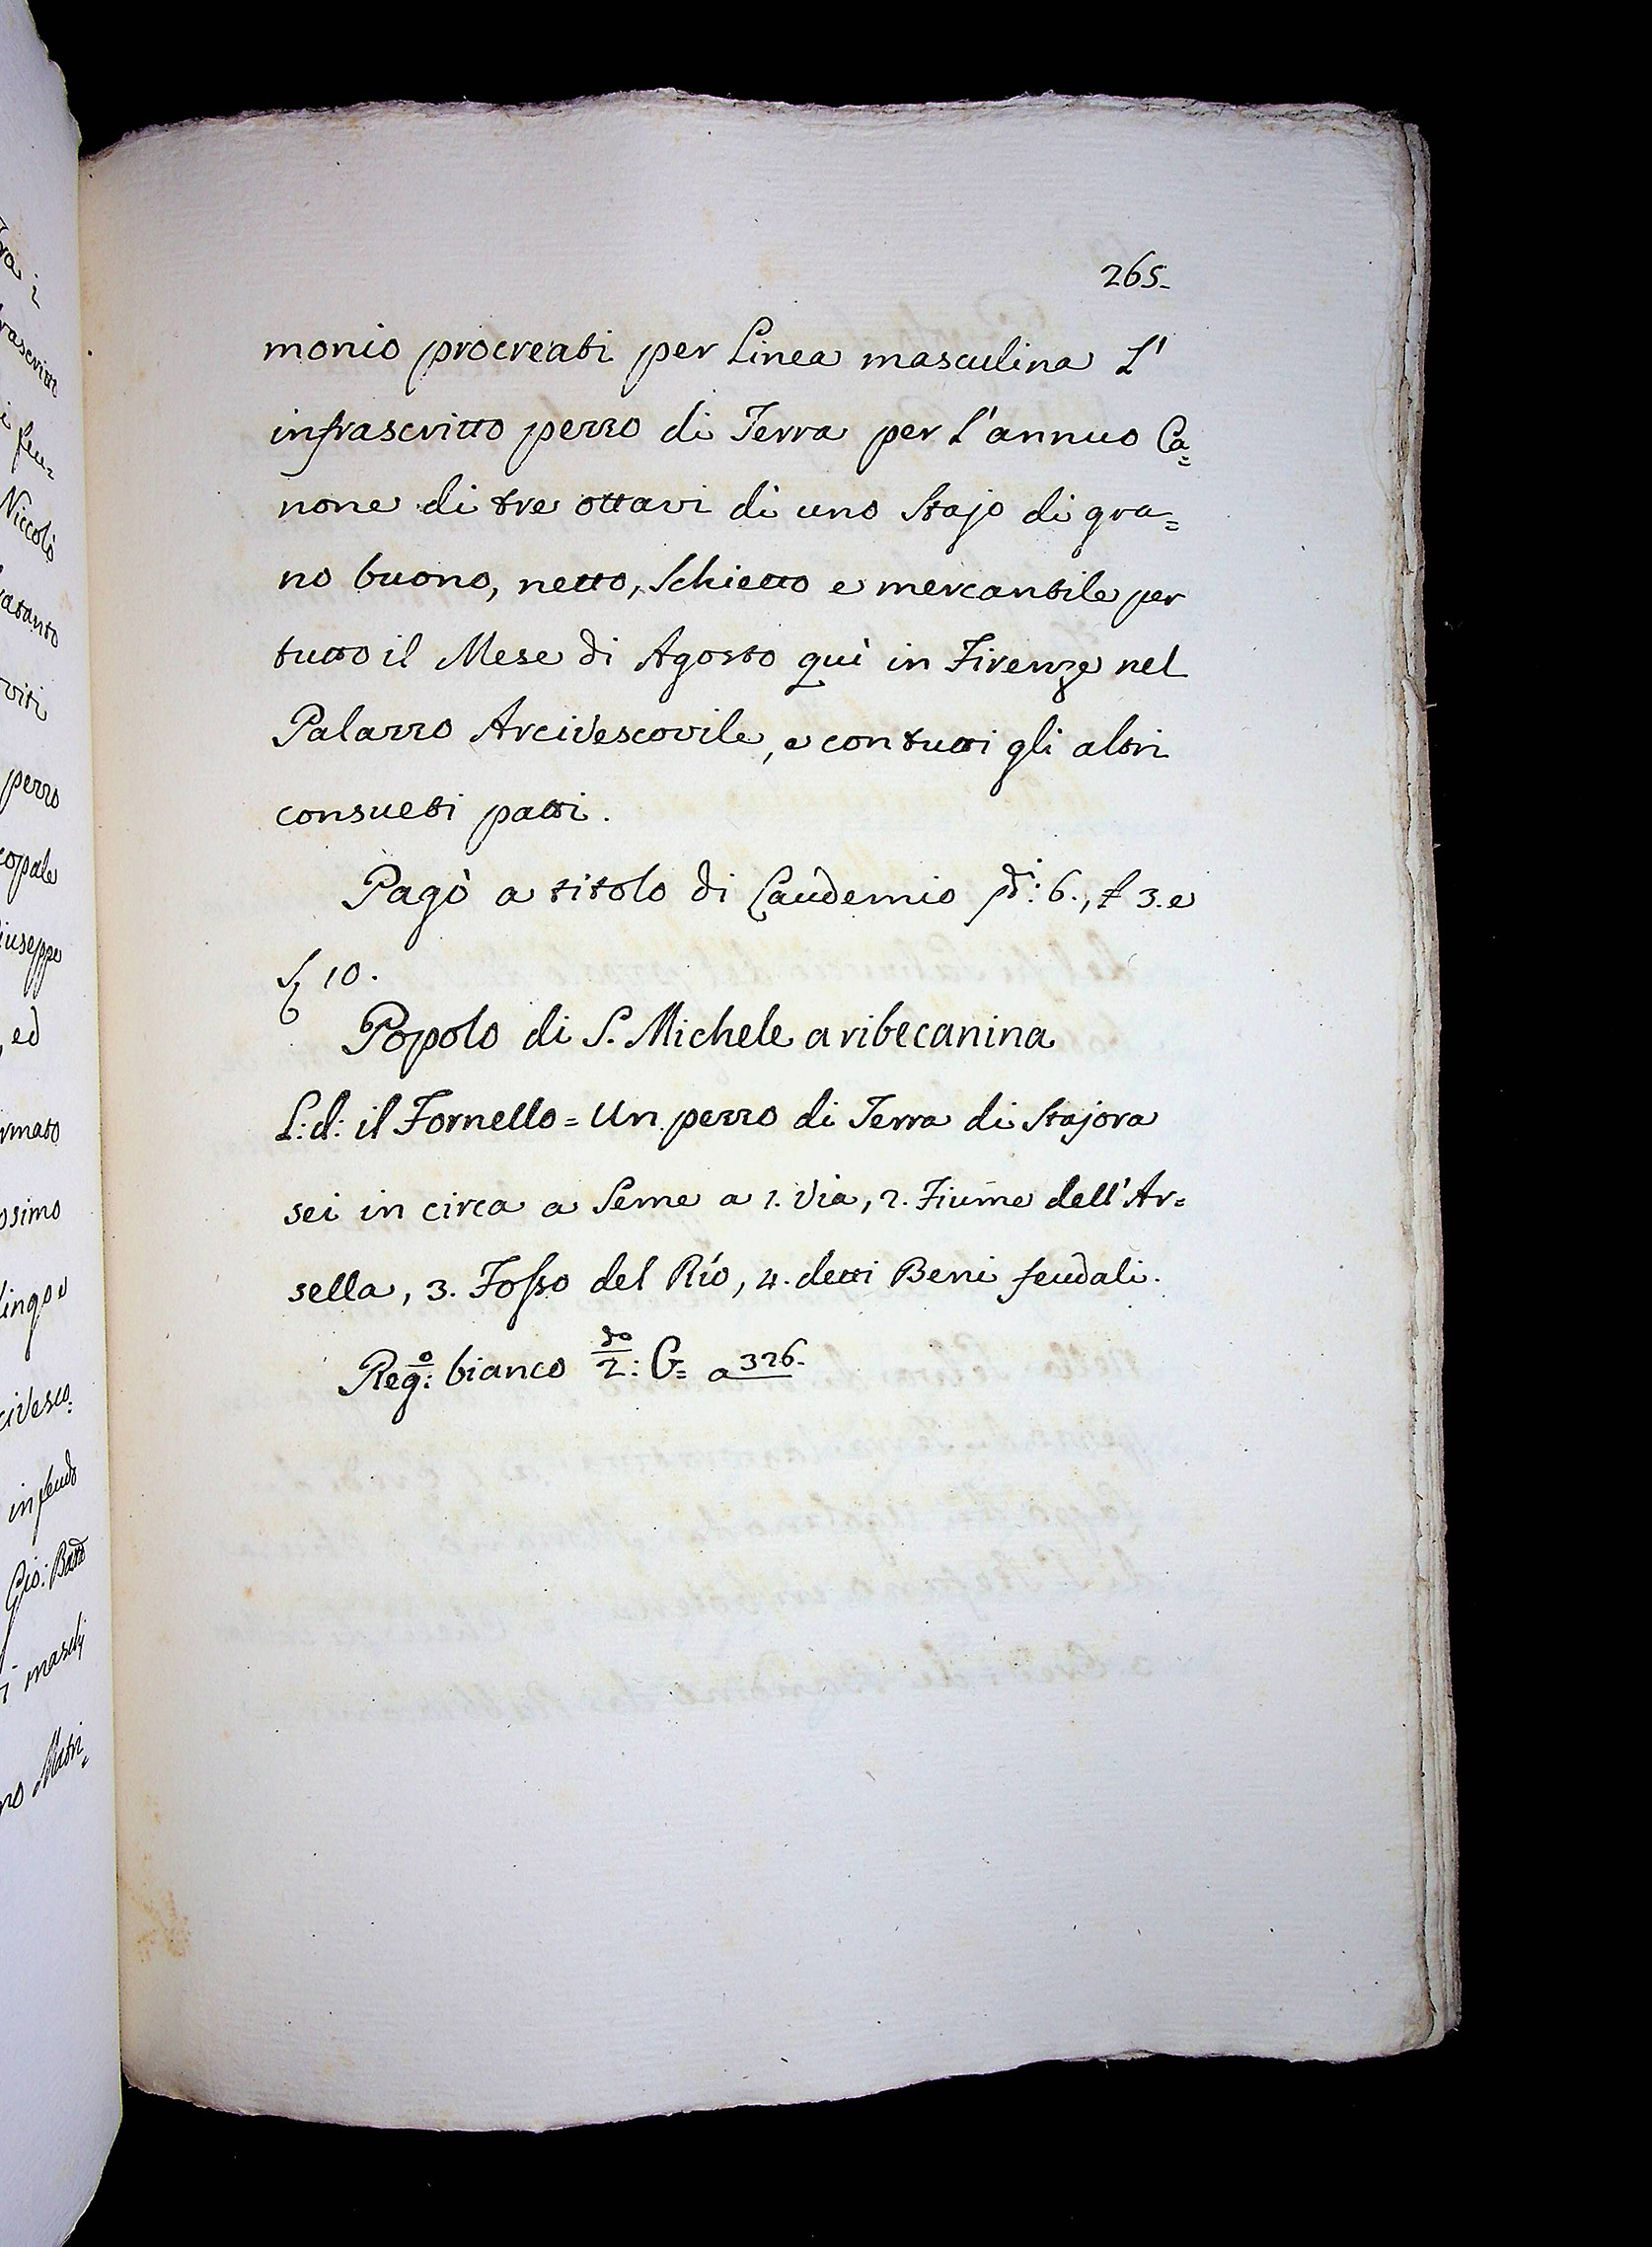 265.
monio procreati per Linea masculina L'
infrascritto pezzo di Terra per l'annuo Ca=
none di tre ottavi di uno Stajo di gra=
no buono, netto, Schietto e mercantile per
tutto il Mese di Agosto quì in Firenze nel
Palazzo Arcivescovile, e con tutti gli altri
consueti patti.
Pagò a titolo di Laudemio 6., £ 3. e
10.
Popolo di S. Michele a ribecanina
L: d: il Fornello = Un pezzo di Terra di Stajora
sei in circa a Seme a 1. Via, 2. Fiume dell'Ar=
sella, 3. Fosso del Rio, 4. detti Beni feudali.
Reg:o bianco 2:do C= a 326.
Niccolò
viti
pezzo
copale
iuseppe
ed
rmato
osimo
civesco=
in feudo
Gio: Batta
maschj
no Matri=